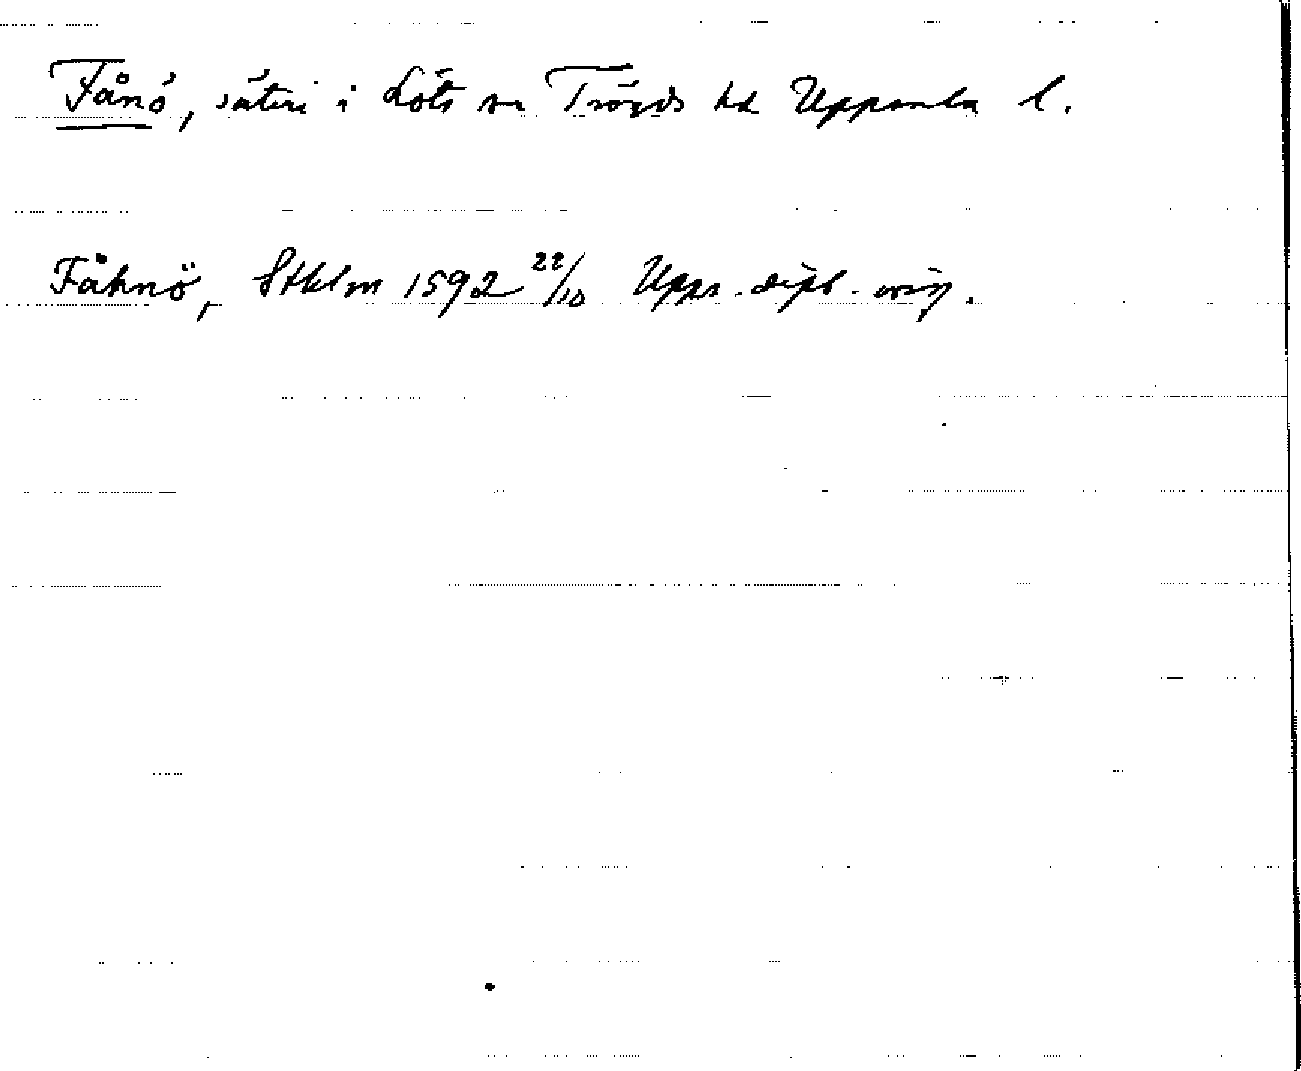 Fånö, säteri i Löts sn Trögds hd Uppsala l.
Fåhnö, Stklm 1592 22/10 Upps. dipl. orig.